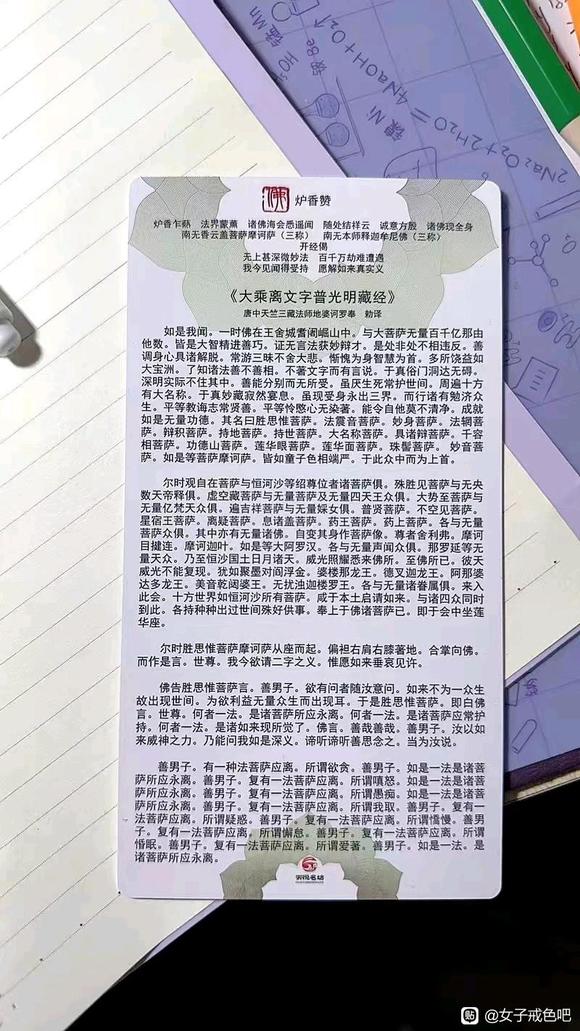 炉香赞
炉香乍爇 法界蒙薰 诸佛海会悉遥闻 随处结祥云 诚意方殷 诸佛现全身
南无香云盖菩萨摩诃萨（三称） 南无本师释迦牟尼佛（三称）
开经偈
无上甚深微妙法 百千万劫难遭遇
我今见闻得受持 愿解如来真实义
《大乘离文字普光明藏经》
唐中天竺三藏法师地婆诃罗奉 勅译
如是我闻。一时佛在王舍城耆阇崛山中。与大菩萨无量百千亿那由
他数。皆是大智精进善巧。证无言法获妙辩才。是处非处不相违反。善
调身心具诸解脱。常游三昧不舍大悲。惭愧为身智慧为首。多所饶益如
大宝洲。了知诸法善不善相。不著文字而有言说。于真俗门洞达无碍。
深明实际不住其中。善能分别而无所受。虽厌生死常护世间。周遍十方
有大名称。于真妙藏寂然宴息。虽现受身永出三界。而行诸有勉济众
生。平等教诲志常贤善。平等怜愍心无染著。能令自他莫不清净。成就
如是无量功德。其名曰胜思惟菩萨。法震音菩萨。妙身菩萨。法辋菩
萨。辩积菩萨。持地菩萨。持世菩萨。大名称菩萨。具诸辩菩萨。千容
相菩萨。功德山菩萨。莲华眼菩萨。莲华面菩萨。珠髻菩萨。妙音菩
萨。如是等菩萨摩诃萨。皆如童子色相端严。于此众中而为上首。
尔时观自在菩萨与恒河沙等绍尊位者诸菩萨俱。殊胜见菩萨与无央
数天帝释俱。虚空藏菩萨与无量菩萨及无量四天王众俱。大势至菩萨与
无量亿梵天众俱。遍吉祥菩萨与无量婇女俱。普贤菩萨。不空见菩萨。
星宿王菩萨。离疑菩萨。息诸盖菩萨。药王菩萨。药上菩萨。各与无量
菩萨众俱。其中亦有无量诸佛。自变其身作菩萨像。尊者舍利弗。摩诃
目揵连。摩诃迦叶。如是等大阿罗汉。各与无量声闻众俱。那罗延等无
量天众。乃至恒沙国土日月诸天。威光照耀悉来佛所。至佛所已。彼天
威光不能复现。犹如聚墨对阎浮金。婆楼那龙王。德叉迦龙王。阿那婆
达多龙王。美音乾闼婆王。无扰浊迦楼罗王。各与无量诸眷属俱。来入
此会。十方世界如恒河沙所有菩萨。咸于本土启请如来。与诸四众同时
到此。各持种种出过世间殊好供事。奉上于佛诸菩萨已。即于会中坐莲
华座。
尔时胜思惟菩萨摩诃萨从座而起。偏袒右肩右膝著地。合掌向佛。
而作是言。世尊。我今欲请二字之义。惟愿如来垂哀见许。
佛告胜思惟菩萨言。善男子。欲有问者随汝意问。如来不为一众生
故出现世间。为欲利益无量众生而出现耳。于是胜思惟菩萨。即白佛
言。世尊。何者一法。是诸菩萨所应永离。何者一法。是诸菩萨应常护
持。何者一法。是诸如来现所觉了。佛言。善哉善哉。善男子。汝以如
来威神之力。乃能问我如是深义。谛听谛听善思念之。当为汝说。
善男子。有一种法菩萨应离。所谓欲贪。善男子。如是一法是诸菩
萨所应永离。善男子。复有一法菩萨应离。所谓嗔怒。如是一法是诸菩
萨所应永离。善男子。复有一法菩萨应离。所谓愚痴。如是一法是诸菩
萨所应永离。善男子。复有一法菩萨应离。所谓我取。善男子。复有一
法菩萨应离。所谓疑惑。善男子。复有一法菩萨应离。所谓憍慢。善男
子。复有一法菩萨应离。所谓懈怠。善男子。复有一法菩萨应离。所谓
惛眠。善男子。复有一法菩萨应离。所谓爱著。善男子。如是一法。是
诸菩萨所应永离。
2Na₂O₂+2H₂O=4NaOH+O₂↑
锰Mn
铍Be
镍Ni
贴 @女子戒色吧